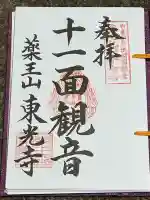 奉拝
十一面観音
薬王山 東光寺